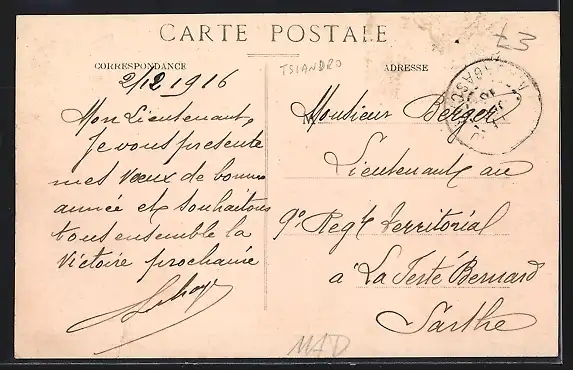 CARTE POSTALE
CORRESPONDANCE
ADRESSE
TSIANDRO
2/12 1916
Mon Lieutenant,
Je vous présente
mes vœux de bonne
année et souhaitons
tous ensemble la
Victoire prochaine
Monsieur Berger
Lieutenant au
9e Regt territorial
à La Ferté Bernard
Sarthe
MAD